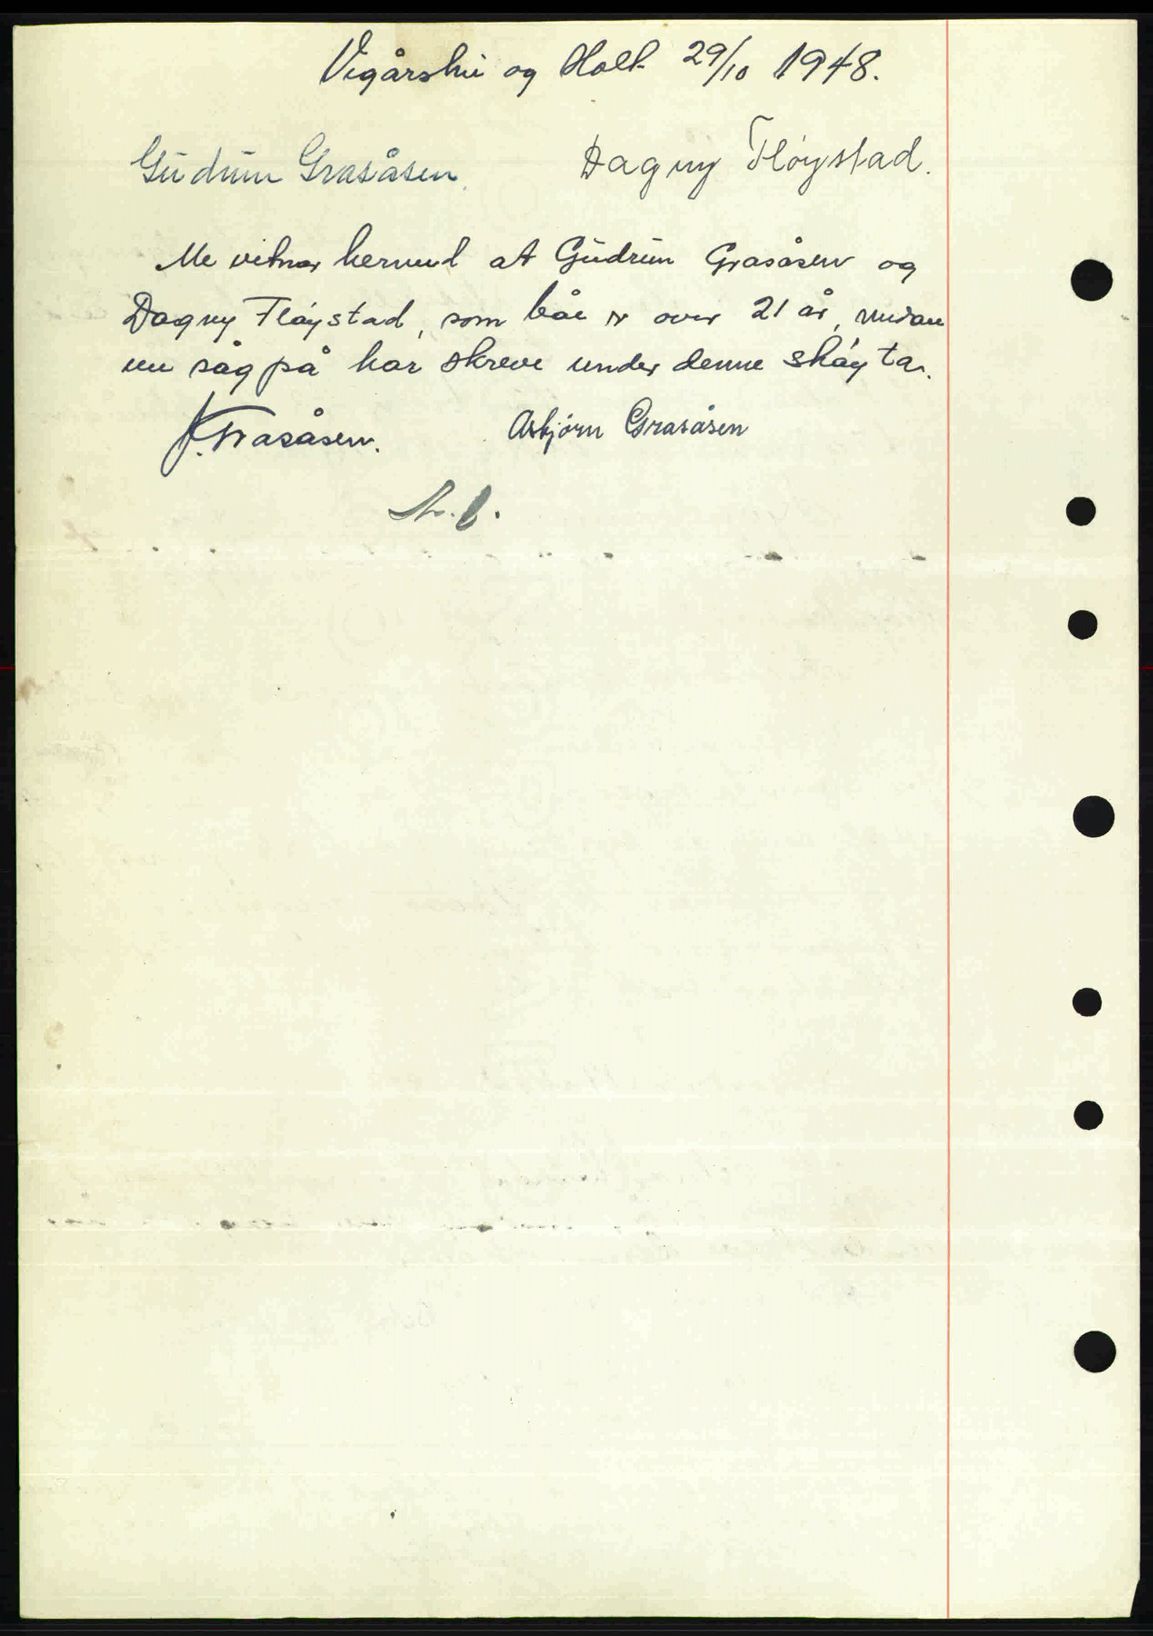 Vegårshei og Holt 29/10 1948.
Gudrun Grasåsen. Dagny Fløystad.
Me vitnar hermed at Gudrun Grasåsen og
Dagny Fløystad, som båe er over 21 år, medan
me såg på har skreve under denne skøyta.
J. Grasåsen. Asbjørn Grasåsen